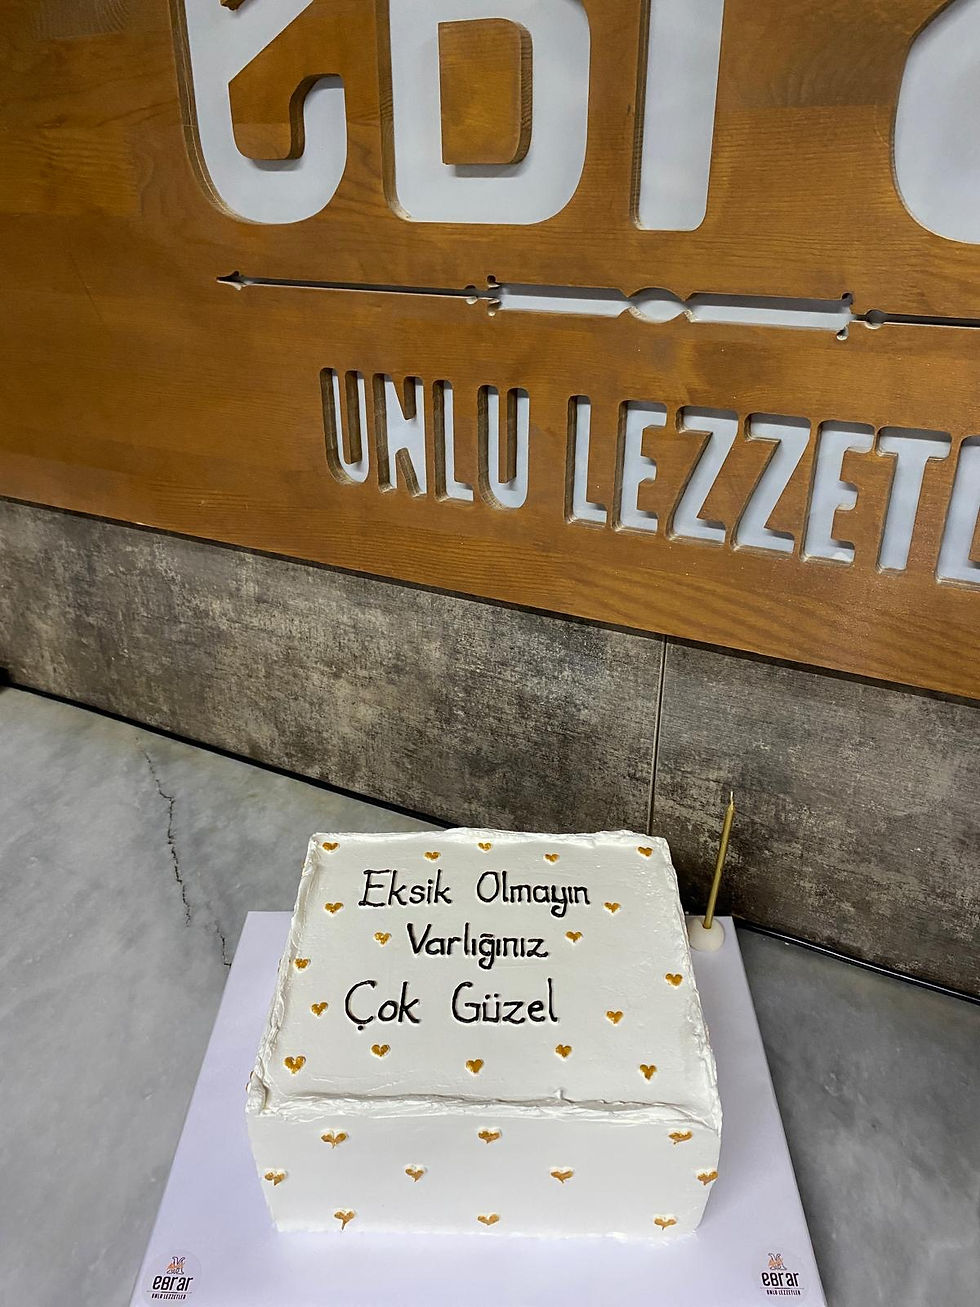 UNLU LEZZETL
Eksik Olmayın
Varlığınız
Çok Güzel
eBrar
UNLU LEZZETLER
eBrar
UNLU LEZZETLER